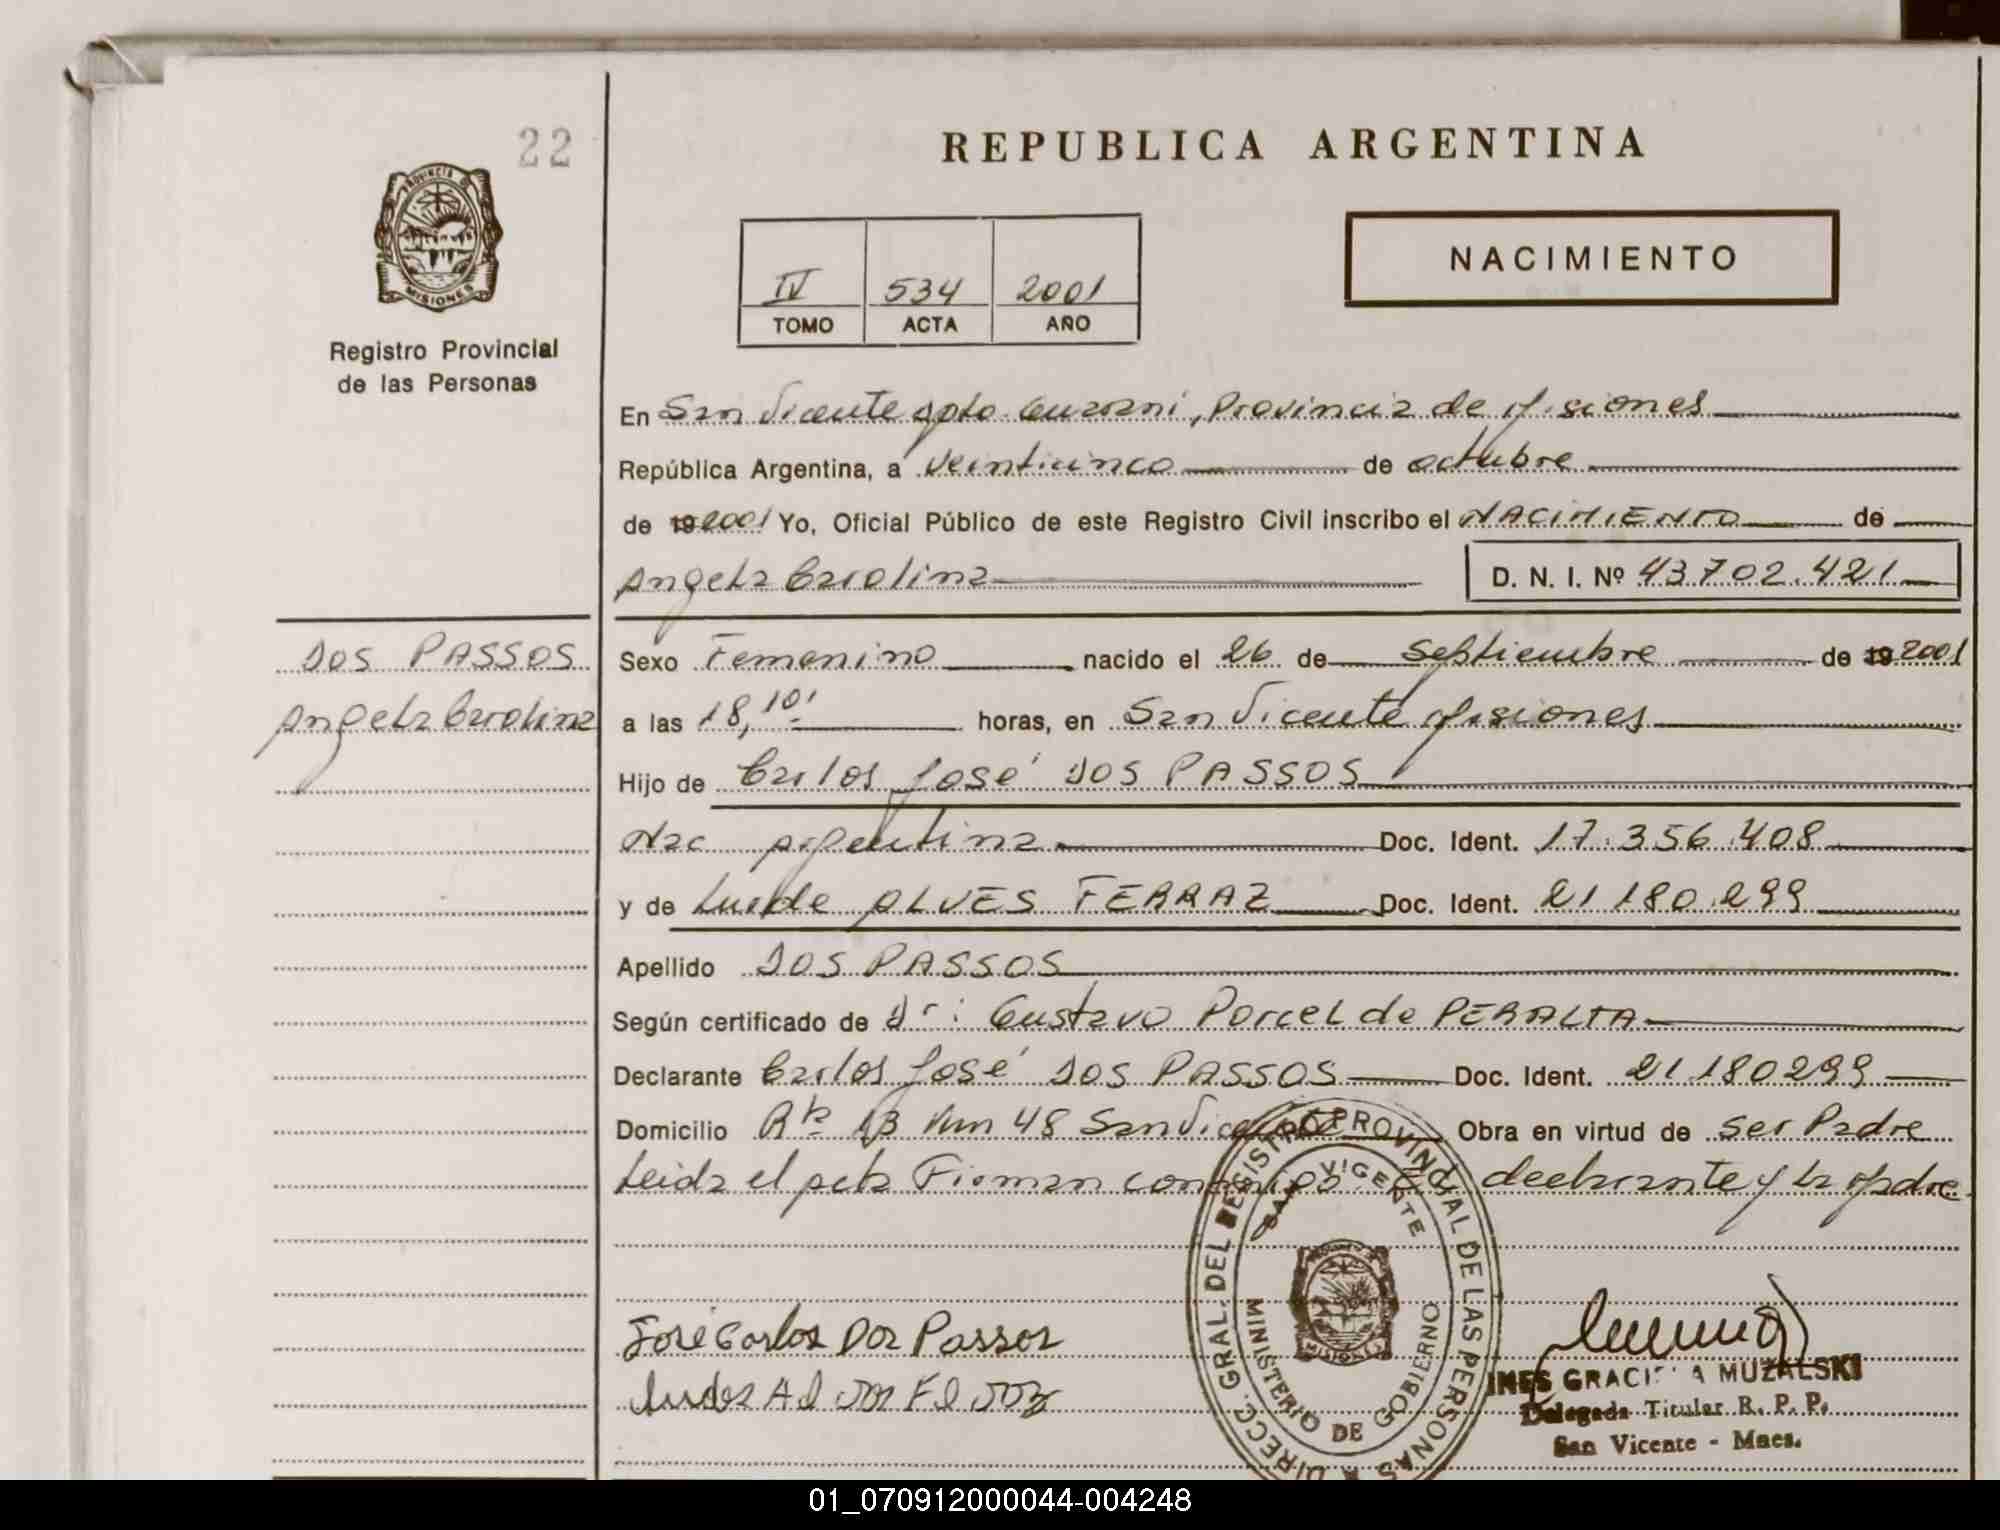 22
REPUBLICA ARGENTINA
PROVINCIA DE
MISIONES
Registro Provincial
de las Personas
NACIMIENTO
IV 534 2001
TOMO ACTA AÑO
En San Vicente Dpto Guaraní, Provincia de Misiones
República Argentina, a Veinticinco de octubre
de 19 2001 Yo, Oficial Público de este Registro Civil inscribo el NACIMIENTO de
Angela Carolina D. N. I. Nº 43.702.421
DOS PASSOS
Angela Carolina
Sexo Femenino nacido el 26 de Septiembre de 19 2001
a las 18,10' horas, en San Vicente Misiones
Hijo de Carlos José DOS PASSOS
Nac Argentina Doc. Ident. 17.356.408
y de ALVES FERRAZ Doc. Ident. 21 180.299
Apellido DOS PASSOS
Según certificado de Dr: Gustavo Porcel de PERALTA
Declarante Carlos José DOS PASSOS Doc. Ident. 21.180299
Domicilio Rta 13 Km 48 San Vicente Obra en virtud de Ser Padre
Leida el Acta Firman conmigo el declarante y la Madre
DIRECC. GRAL. DEL REGISTRO PROVINCIAL DE LAS PERSONAS
SAN VIGENTE
MISIONES
MINISTERIO DE GOBIERNO
José Carlos Dos Passos
INES GRACIELA MUZALSKI
Delegada Titular R. P. P.
San Vicente - Mnes.
01_070912000044-004248